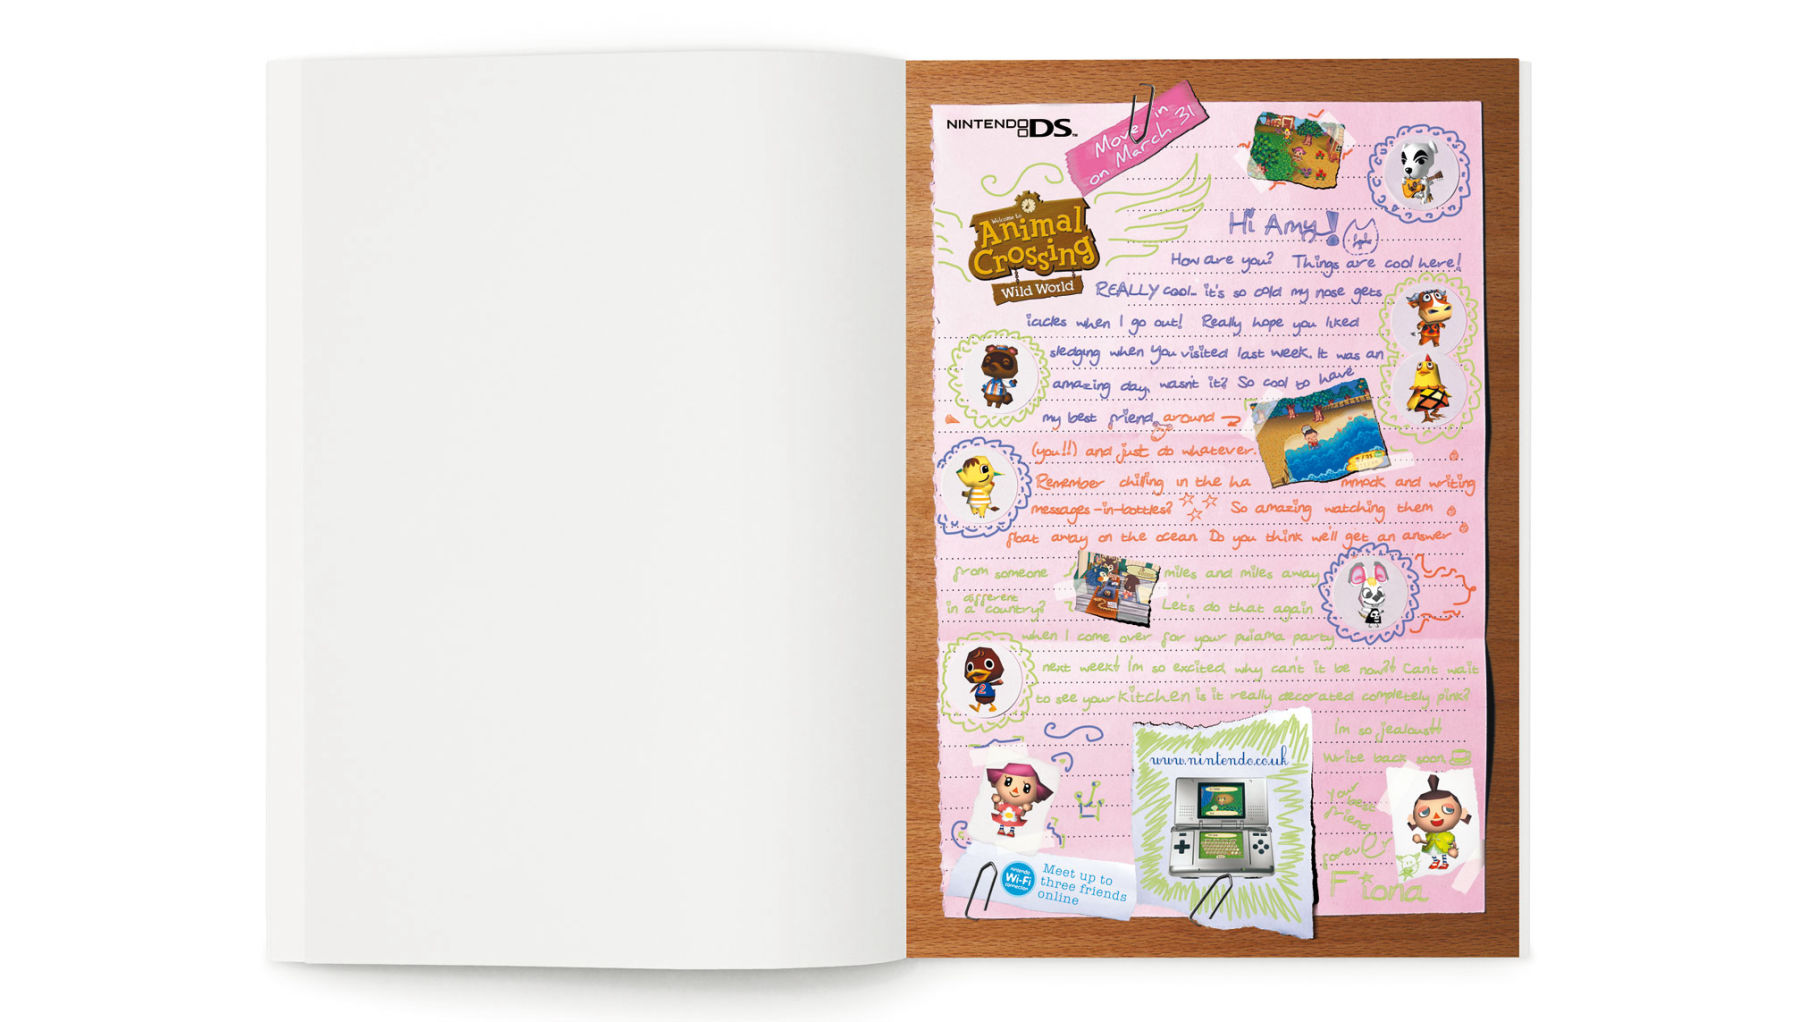 NINTENDO DS™
Move in
on March 31
Welcome to
Animal
Crossing
Wild World
Hi Amy!
How are you? Things are cool here!
REALLY cool.. it's so cold my nose gets
icicles when I go out! Really hope you liked
sledging when you visited last week. It was an
amazing day, wasn't it? So cool to have
my best friend around
(you!!) and just do whatever.
Remember chilling in the ha mmock and writing
messages-in-bottles? So amazing watching them
float away on the ocean. Do you think we'll get an answer
from someone miles and miles away
different
in a country? Let's do that again
when I come over for your pujama party
next week! I'm so excited why can't it be now?! Can't wait
to see your kitchen is it really decorated completely pink?
I'm so jealous!!
Write back soon
your
best
friend
forever
Fiona
www.nintendo.co.uk
Nintendo
Wi-Fi
connection
Meet up to
three friends
online